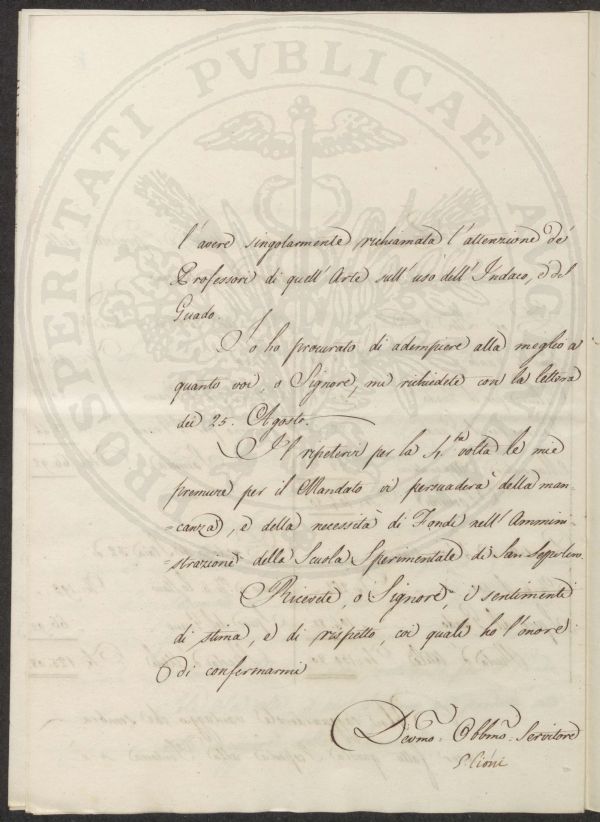 PROSPERITATI PVBLICAE AUG
l'avere singolarmente richiamata l'attenzione de'
Professori di quell'Arte sull'uso dell'Indaco, e del
Guado.
Io ho procurato di adempiere alla meglio a
quanto voi, o Signore, mi richiedete con la lettera
dei 25. Agosto.
Il ripetervi per la 4.ta volta le mie
premure per il Mandato vi persuaderà della man-
=canza, e della necessità di Fondi nell'Ammini-
=strazione della Scuola Sperimentale di San Sepolcro.
Ricevete, o Signore, i sentimenti
di stima, e di rispetto, coi quali ho l'onore
di confermarmi
Devmo. Obbmo. Servitore
Cioni